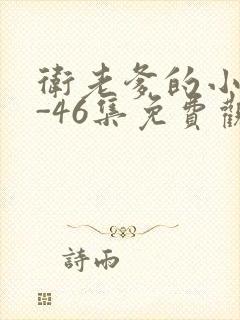 衛老爹的小
-46集免費觀
詩雨